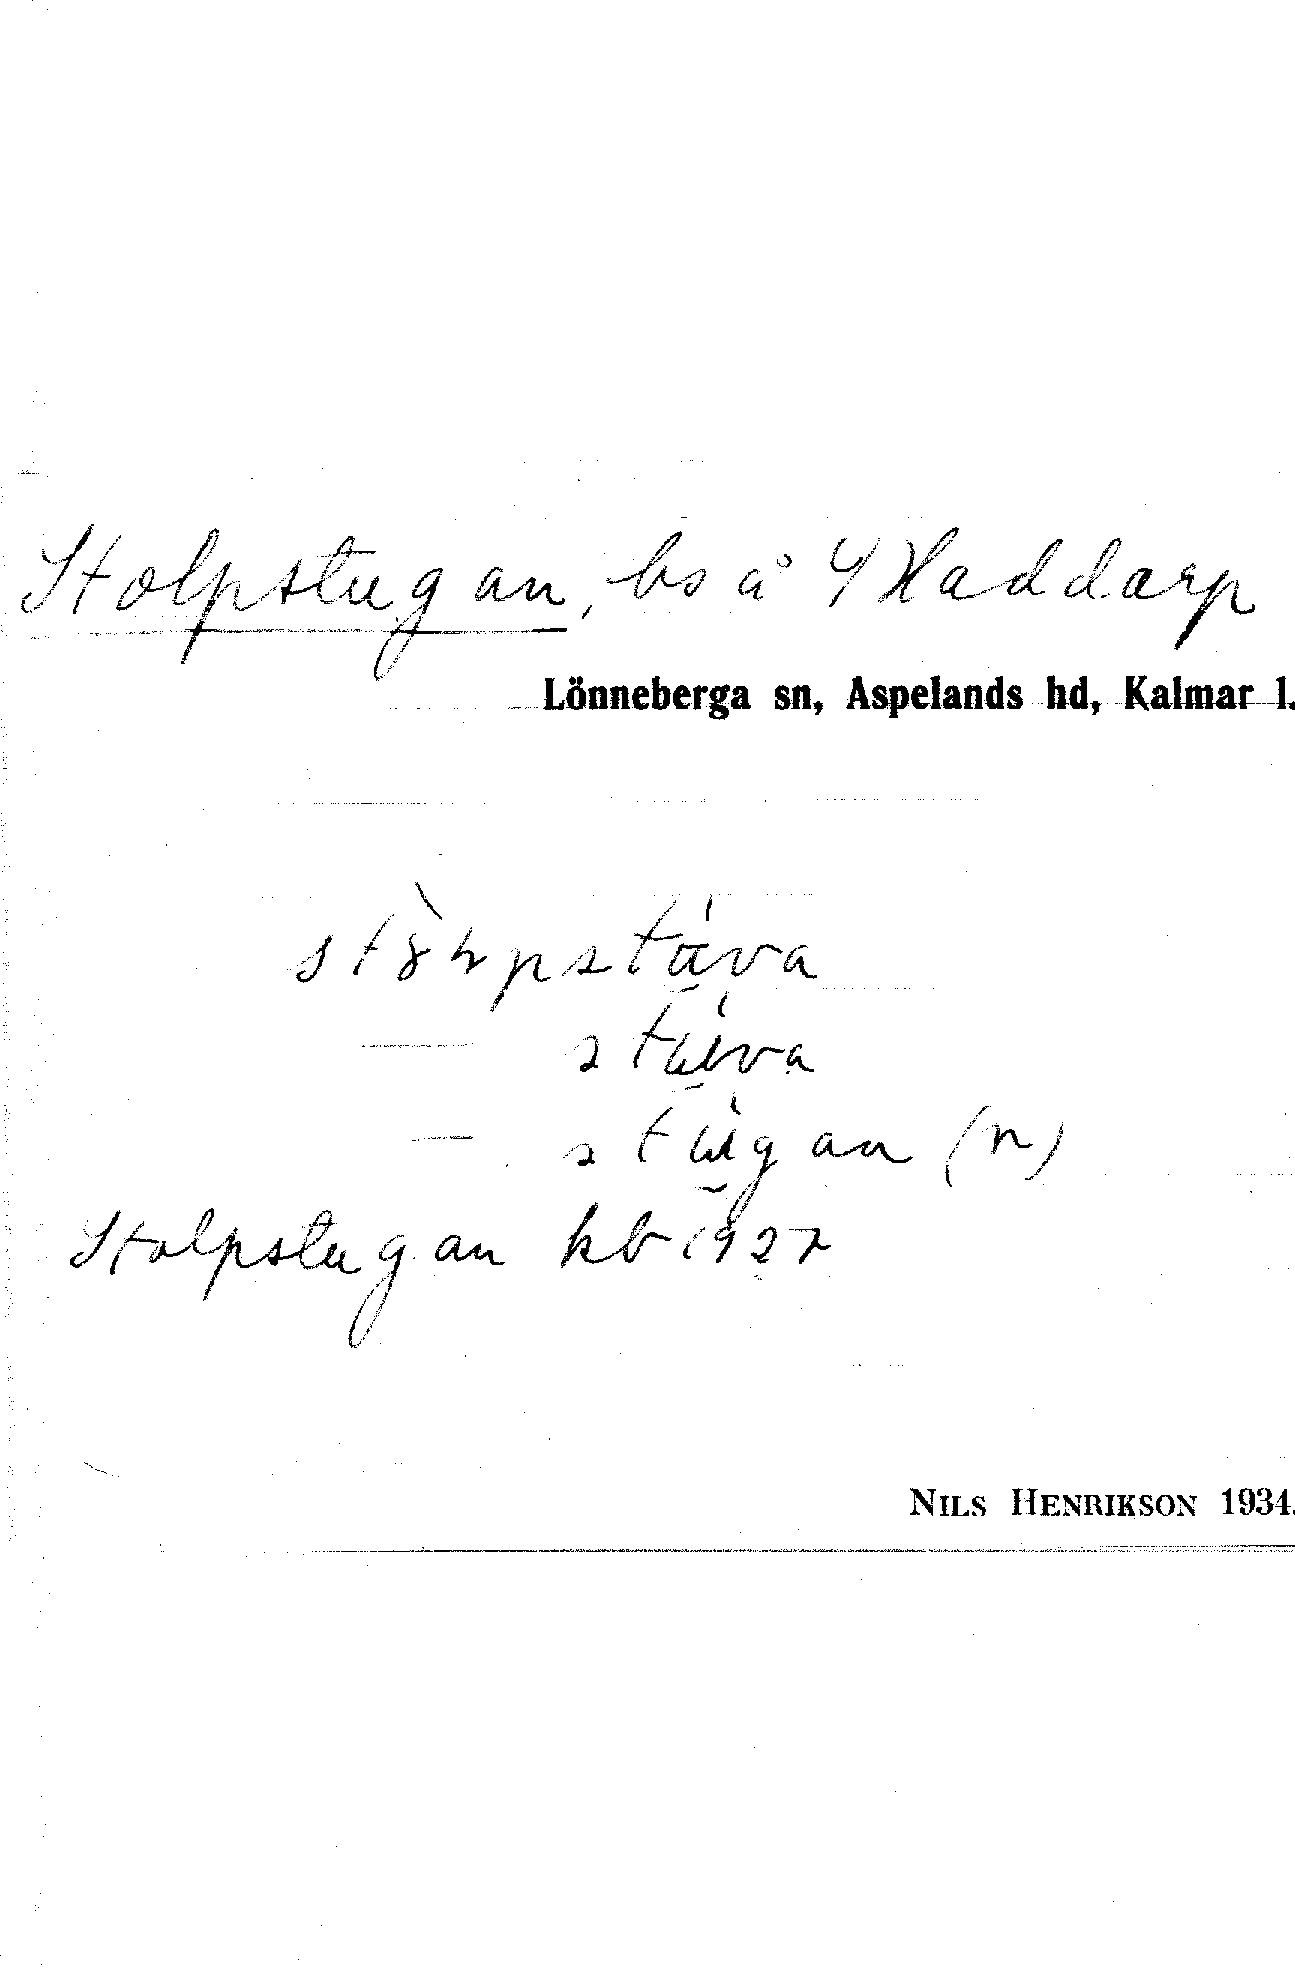 Stolpstugan, bs å 4 Haddarp
Lönneberga sn, Aspelands hd, Kalmar l.
— stúva
— stúgan (n)
Stolpstugan kb 1927
NILS HENRIKSON 1934.